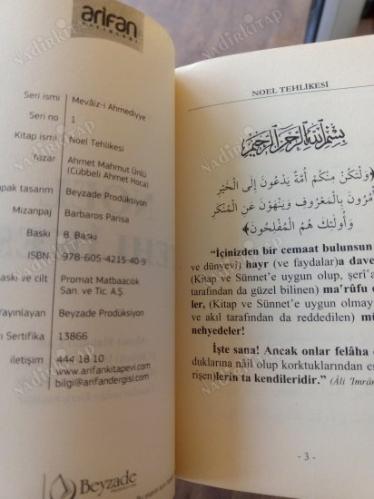 arifan
YAYINLARI
Seri ismi Mevâiz-i Ahmediyye
Seri no 1
Kitap ismi Noel Tehlikesi
Yazar Ahmet Mahmut Ünlü
(Cübbeli Ahmet Hoca)
apak tasarım Beyzade Prodüksiyon
Mizanpaj Barbaros Parisa
Baskı 8. Baskı
ISBN 978-605-4215-40-9
askı ve cilt Promat Matbaacılık
San. ve Tic. A.Ş.
Yayınlayan Beyzade Prodüksiyon
ı Sertifika 13866
iletişim 444 18 10
www.arifankitapevi.com
bilgi@arifandergisi.com
Beyzade
NOEL TEHLİKESİ
بِسْمِ اللهِ الرَّحْمٰنِ الرَّحِيْمِ
﴿وَلْتَكُنْ مِنْكُمْ أُمَّةٌ يَدْعُونَ إِلَى الْخَيْرِ
أْمُرُونَ بِالْمَعْرُوفِ وَيَنْهَوْنَ عَنِ الْمُنْكَرِ
وَأُولَئِكَ هُمُ الْمُفْلِحُونَ﴾
“İçinizden bir cemaat bulunsun
ve dünyevî) hayr (ve faydalar)a dave
(Kitap ve Sünnet’e uygun olup, şerî’a
tarafından da güzel bilinen) ma’rûfu
ler, (Kitap ve Sünnet’e uygun olmay
ve akıl tarafından da reddedilen) mü
nehyedeler!
İşte sana! Ancak onlar felâha
duklarına nâil olup korktuklarından
rişen)lerin ta kendileridir.” (Âli ‘Imrân
- 3 -
NADİRKİTAP